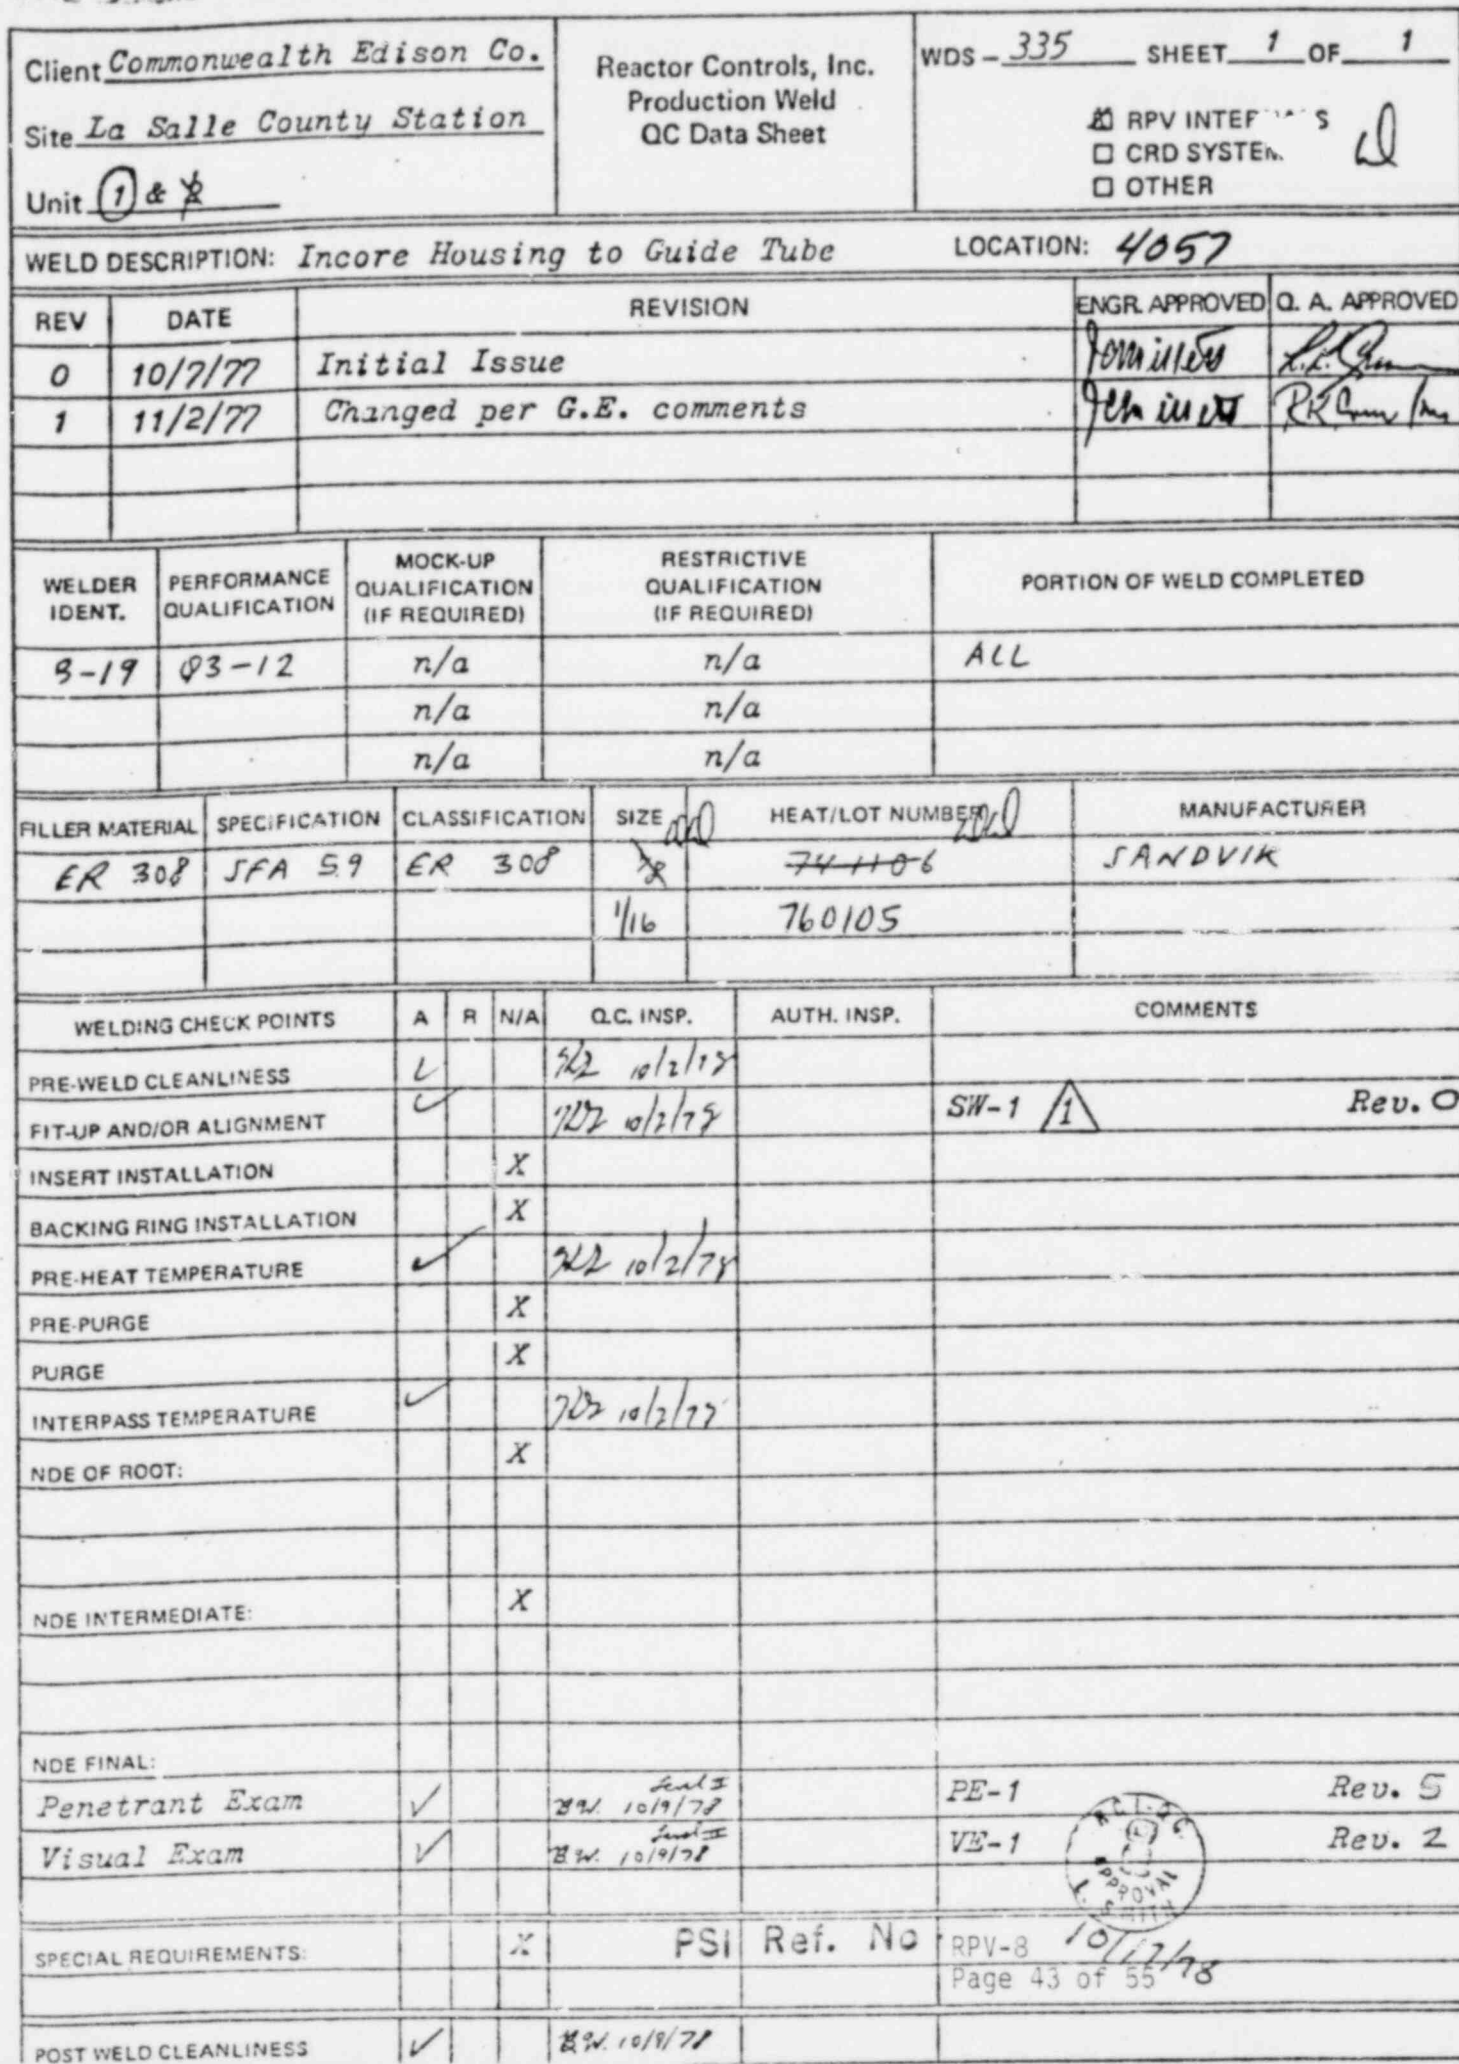 Client Commonwealth Edison Co.
Site La Salle County Station
Unit 1 & 2
Reactor Controls, Inc.
Production Weld
QC Data Sheet
WDS - 335 SHEET 1 OF 1
RPV
CRD
OTHER
WELD DESCRIPTION: Incore Housing to Guide Tube LOCATION: 4057
REV DATE REVISION ENGR. APPROVED Q. A. APPROVED
0 10/7/77 Initial Issue
1 11/2/77 Changed per G.E. comments
WELDER IDENT. PERFORMANCE QUALIFICATION MOCK-UP QUALIFICATION (IF REQUIRED) RESTRICTIVE QUALIFICATION (IF REQUIRED) PORTION OF WELD COMPLETED
n/a n/a ALL
n/a n/a
n/a n/a
FILLER MATERIAL SPECIFICATION CLASSIFICATION SIZE HEAT/LOT NUMBER MANUFACTURER
ER 308 SFA 5.9 ER 308 741106 SANDVIK
1/16 760105
WELDING CHECK POINTS A R N/A Q.C. INSP. AUTH. INSP. COMMENTS
PRE-WELD CLEANLINESS 10/2/78
FIT-UP AND/OR ALIGNMENT 10/2/78 SW-1 1 Rev. 0
INSERT INSTALLATION X
BACKING RING INSTALLATION X
PRE-HEAT TEMPERATURE ✓ 10/2/78
PRE-PURGE X
PURGE X
INTERPASS TEMPERATURE ✓ 10/2/78
NDE OF ROOT: X
NDE INTERMEDIATE: X
NDE FINAL:
Penetrant Exam ✓ Level II 10/9/78 PE-1 Rev. 5
Visual Exam ✓ Level II B.W. 10/9/78 VE-1 Rev. 2
RCI-QC
APPROVAL
L. SMITH
10/17/78
SPECIAL REQUIREMENTS: X PSI Ref. No RPV-8
Page 43 of 55
POST WELD CLEANLINESS ✓ B.W. 10/9/78